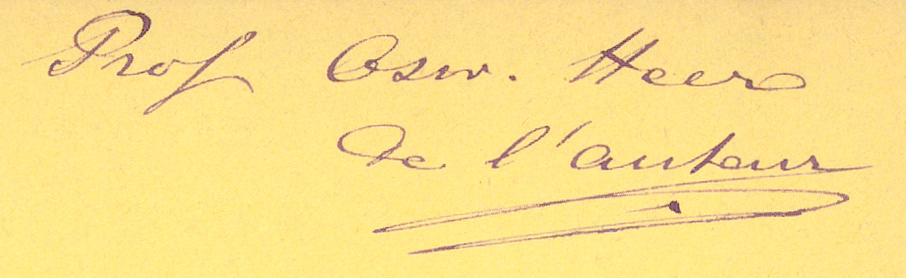 Prof Osw. Heer
de l'auteur